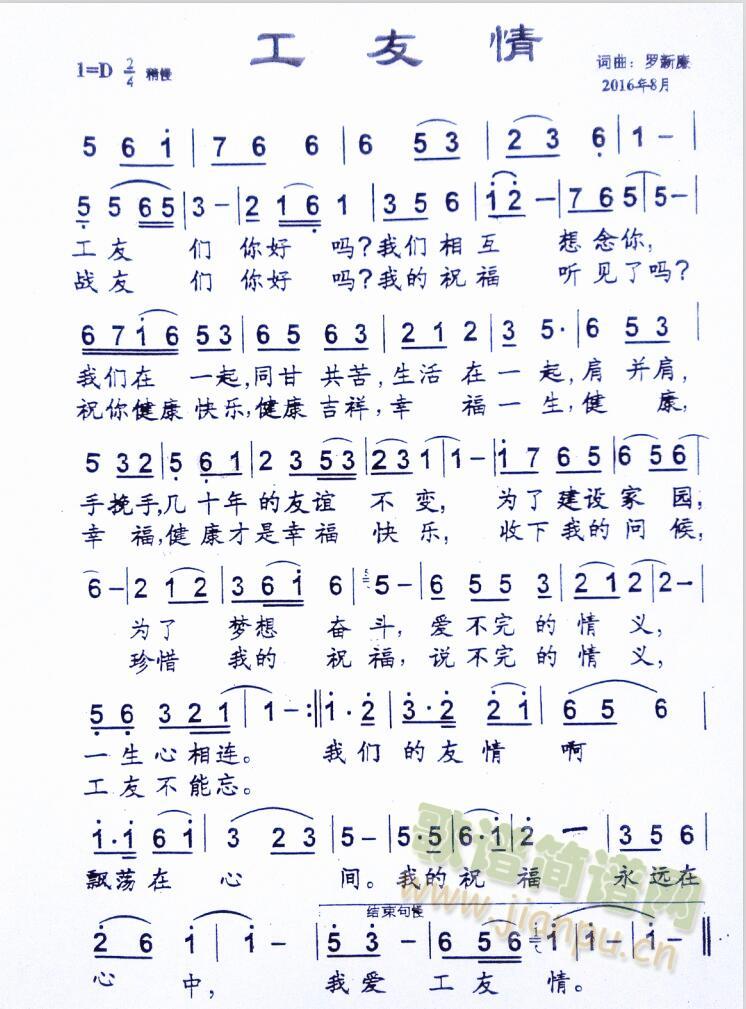 工友情
1=D 2/4 稍慢
词曲：罗新廉
2016年8月
5 6 i | 7 6 6 | 6 5 3 | 2 3 6 | 1 – |
5 5 6 5 | 3 – | 2 1 6 1 | 3 5 6 | i 2 – | 7 6 5 | 5 – |
工友 们 你好 吗？我们相互 想念你，
战友 们 你好 吗？我的祝福 听见了吗？
6 7 i 6 5 3 | 6 5 6 3 | 2 1 2 | 3 5 · | 6 5 3 |
我们在 一起，同甘 共苦，生活 在 一 起，肩 并肩，
祝你健康 快乐，健康 吉祥，幸 福 一 生，健 康，
5 3 2 | 5 6 1 | 2 3 5 3 | 2 3 1 | 1 – | i 7 6 5 | 6 5 6 |
手挽手，几十年的友谊 不 变， 为了 建设家 园，
幸 福，健康才是幸福 快 乐， 收下 我的问 候，
6 – | 2 1 2 | 3 6 i 6 | 5 – | 6 5 5 3 | 2 1 2 | 2 – |
为了 梦想 奋 斗，爱 不完 的 情 义，
珍惜 我的 祝 福，说 不完 的 情 义，
5 6 3 2 1 | 1 – :‖ i · 2 | 3 · 2 2 i | 6 5 6 |
一生心相连。 我们的友情 啊
工友不能忘。
i · i 6 i | 3 2 3 | 5 – | 5 · 5 | 6 · i | 2 – | 3 5 6 |
飘荡在 心 间。我的祝 福 永远在
结束句慢
2 6 i | i – | 5 3 – | 6 5 6 | i i – | i – ‖
心 中， 我爱 工友 情。
歌谱简谱网
www.jianpu.cn